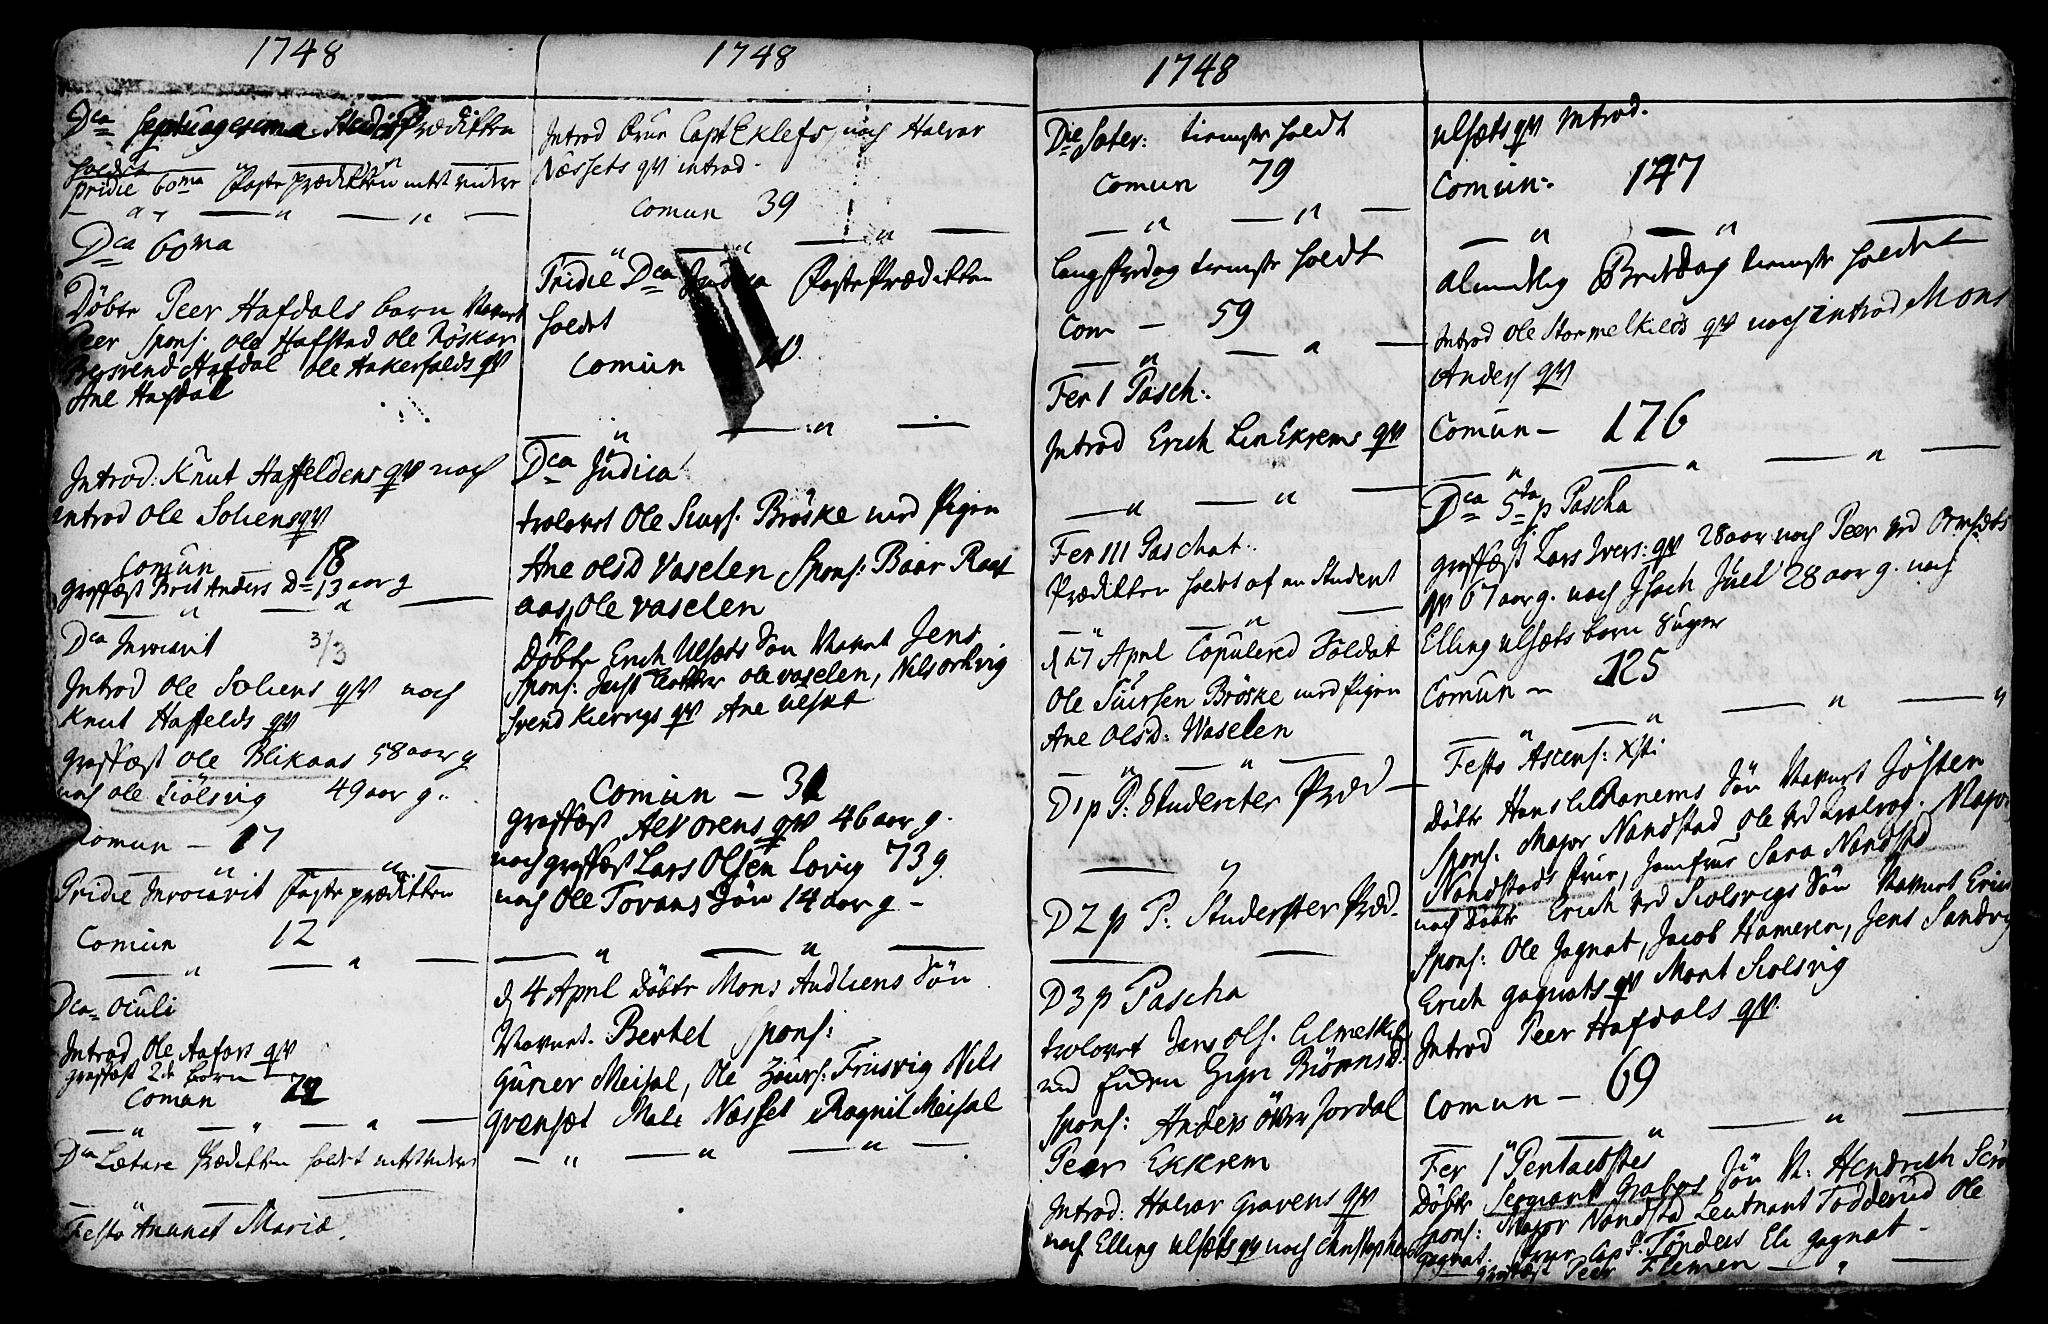 1748
Dca Septuagesima Prædiken
holdet
pridie 60ma Faste prædikken intet videre
Dca 60ma
Döbte Peer Hafdals barn
Peer Spons: Ole Hafstad Ole Röskar
Svend Hafdal Ole qv
Ane Hafdal
Introd: Knut Haffeldens qv noch
introd Ole Soliens qv
Comun 18
graffæst Brit Anders D 13 aar g
Dca Invocavit 3/3
Introd Ole Soliens qv noch
Knut Haffelds qv
graffæst Ole Blikaas 58 aar g
noch Ole Siölsvig 49 aar g.
Comun - 17
Pridie Invocavit Faste prædikken
Comun 12
Dca Oculi
Introd Ole Aafars qv
graffæst 2de börn
Coman 22
Dca Lætare Prædikken holdet intet videre
Festo Anunct Mariæ.
1748
Introd Frue Capt Eklefs, noch Halvor
Næssets qv introd.
Comun 39
Pridie Dca Judica Faste Prædikken
holdet
Comun
Dca Judica
trolovet Ole Siurs: Bröske med Pigen
Ane Olsd Vaselen Spons: Baar
aas, Ole Vaselen
Döbte Erich Ulsæts Sön Navnet Jens
Spons: Ole Vaselen, Nils
Svend qv Ane Ulset
Comun - 31
graffæst Alv Orens qv 46 aar g.
noch graffæst Lars Olsen Lovig 73 g.
noch Ole Torvans Sön 14 aar g -
d 4 April Döbte Mons Audliens Sön
Navnet. Bertel Spons:
Guner Meisal, Ole Frisvig Nils
Grensæt Mali Næsset Ragnil Meisal
1748
Die Sater: tienneste holdt
Comun 79
Langfredag tienneste holdt
Com - 59
Fer 1 Pasch:
Introd Erich LinEkrems qv
Fer III Paschat.
Prædikken holdet af en Student
d 17 April Copulered Soldat
Ole Siursen Bröske med Pigen
Ane Olsd: Waselen
D 1 p P: Studenter Præd
D 2 p P: Studenter Præd.
D 3 p Pascha
trolovet Jens Ols.
med Enken Sigri Biörnsd:
Spons: Anders Över Jordal
Peer Ekkrem
Introd: Halvor Gravens qv
noch Elling Ulsæts qv noch Christopher
Ulsæts qv Introd.
Comun: 147
Almindelig Beededag tienneste holdet
Introd Ole Stormelkilds qv noch introd Mons
Anders qv
Comun - 176
Dca 5ta p Pascha
graffæst Lars Ivers: qv 28 aar noch Peer ved Ormsæts
qv 67 aar g. noch Isach Juel 28 aar g. noch
Elling Ulsæts barn 8 uger
Comun - 125
Festo Ascens: Xsti
Döbte Hans LilRanems Sön Navnet Jösten
Spons. Major Nandstad Ole ved Major
Nandstads Frue, Jomfrue Sara Nandstad
noch Döbte Erich ved Siolsvigs Sön Navnet
Spons: Ole Gagnat, Jacob Hameren, Jens Sandvig
Erich Gagnats qv Marit Siolsvig
Introd Peer Hafdals qv.
Comun - 69
Fer 1 Pentacostes
Döbte Sergiant Grabos Sön N: Hendrich
Spons: Major Nandstad Leutnant Todderud Ole
Gagnat. Frue Capt. Tönders Eli Gagnat -
graffæst Peer Flemen